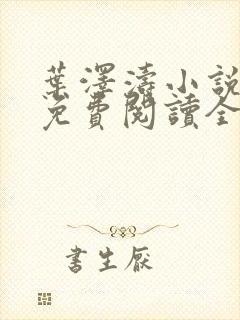 葉澤濤小說
免費閱讀全
書生厭